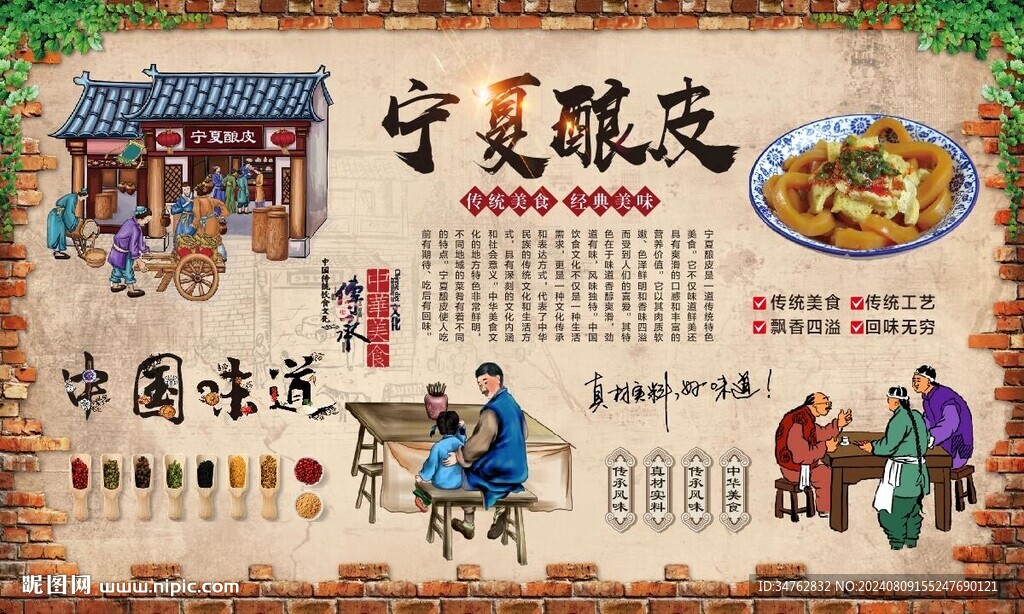 宁夏酿皮
宁夏酿皮
传统美食 经典美味
宁夏酿皮是一道传统特色
美食。它不仅味道鲜美还
具有爽滑的口感和丰富的
营养价值。它以其肉质软
嫩、色泽鲜明和香味四溢
而受到人们的喜爱。其特
色在于味道香醇爽滑，劲
道有味，风味独特。中国
饮食文化不仅是一种生活
需求，更是一种文化传承
和表达方式，代表了中华
民族的传统文化和生活方
式，具有深刻的文化内涵
和社会意义。中华美食文
化的地方特色非常鲜明，
不同地域的菜肴有着不同
的特点。宁夏酿皮使人吃
前有期待、吃后有回味。
传统美食 传统工艺
飘香四溢 回味无穷
中国传统饮食文化
传承
中華美食
文化
中国味道
真材实料，好味道！
传承风味
真材实料
传承风味
中华美食
昵图网 www.nipic.com
ID:34762832 NO:20240809155247690121